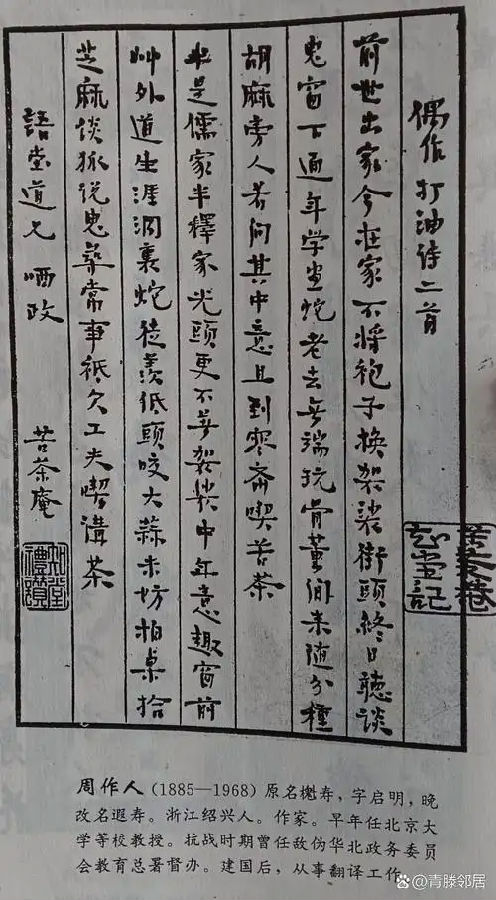 偶作 打油诗二首
前世出家今在家不将袍子換袈裟街頭終日聽談
鬼窗下通年学画蛇老去無端玩骨董閒来随分種
胡麻旁人若问其中意且到寒斋喫苦茶
半是儒家半釋家光頭更不着袈裟中年意趣窗前
艸外道生涯洞裏蛇徒羨低頭咬大蒜未妨拍桌拾
芝麻谈狐说鬼尋常事祇欠工夫喫講茶
語堂道兄哂政 苦茶庵
苦茶庵
知堂記
知堂
禮讚
周作人 (1885—1968) 原名櫆寿,字启明,晚
改名遐寿。浙江绍兴人。作家。早年任北京大
学等校教授。抗战时期曾任敌伪华北政务委员
会教育总署督办。建国后,从事翻译工作。
@青滕邻居